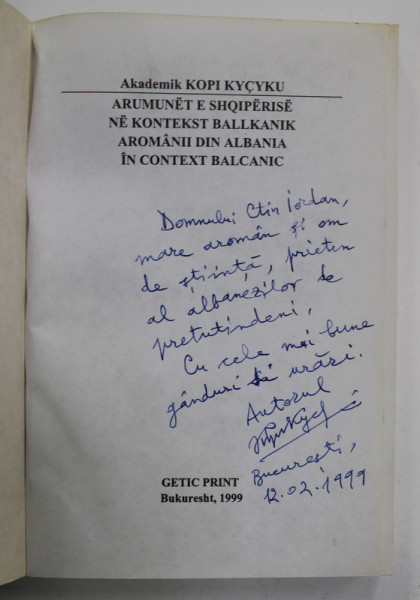 Akademik KOPI KYÇYKU
ARUMUNËT E SHQIPËRISË
NË KONTEKST BALLKANIK
AROMÂNII DIN ALBANIA
ÎN CONTEXT BALCANIC
Domnului Ctin Iordan,
mare aromân și om
de știință, prieten
al albanezilor de
pretutindeni,
Cu cele mai bune
gânduri și urări.
Autorul
București,
12.02.1999
GETIC PRINT
Bukuresht, 1999